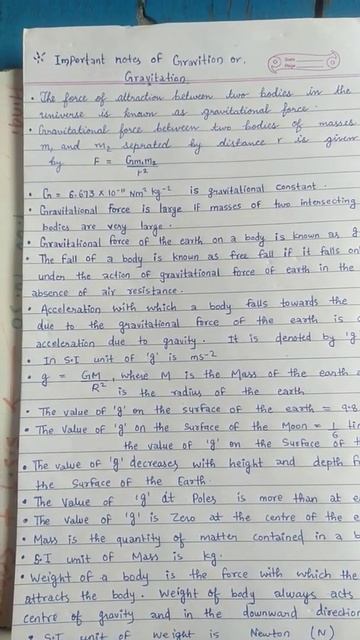 * Important notes of Gravition or.
Gravitation
Date
Page
• The force of attraction between two bodies in the
universe is known as gravitational force.
• Gravitational force between two bodies of masses
m₁ and m₂ seprated by distance r is given
by F = Gm₁m₂/r²
• G = 6.673 X 10⁻¹¹ Nm² kg⁻² is gravitational constant.
• Gravitational force is large if masses of two intersecting
bodies are very large.
• Gravitational force of the earth on a body is known as
• The fall of a body is known as free fall if it falls on
under the action of gravitational force of earth in the
absence of air resistance.
• Acceleration with which a body falls towards the
due to the gravitational force of the earth is
acceleration due to gravity. It is denoted by 'g
• In S.I unit of 'g' is ms⁻²
• g = GM/R², where M is the Mass of the earth
is the radius of the earth
• The value of 'g' on the surface of the earth = 9.8
• The value of 'g' on the surface of the Moon = 1/6
the value of 'g' on the surface of
• The value of 'g' decreases with height and depth
the Surface of the Earth.
• The value of 'g' at Poles is more than at
• The value of 'g' is Zero at the centre of the
• Mass is the quantity of matten contained in a
• S.I unit of Mass is kg.
• Weight of a body is the force with which the
attracts the body. Weight of body always acts
centre of gravity and in the downward direction
• S.I unit of weight is Newton (N)